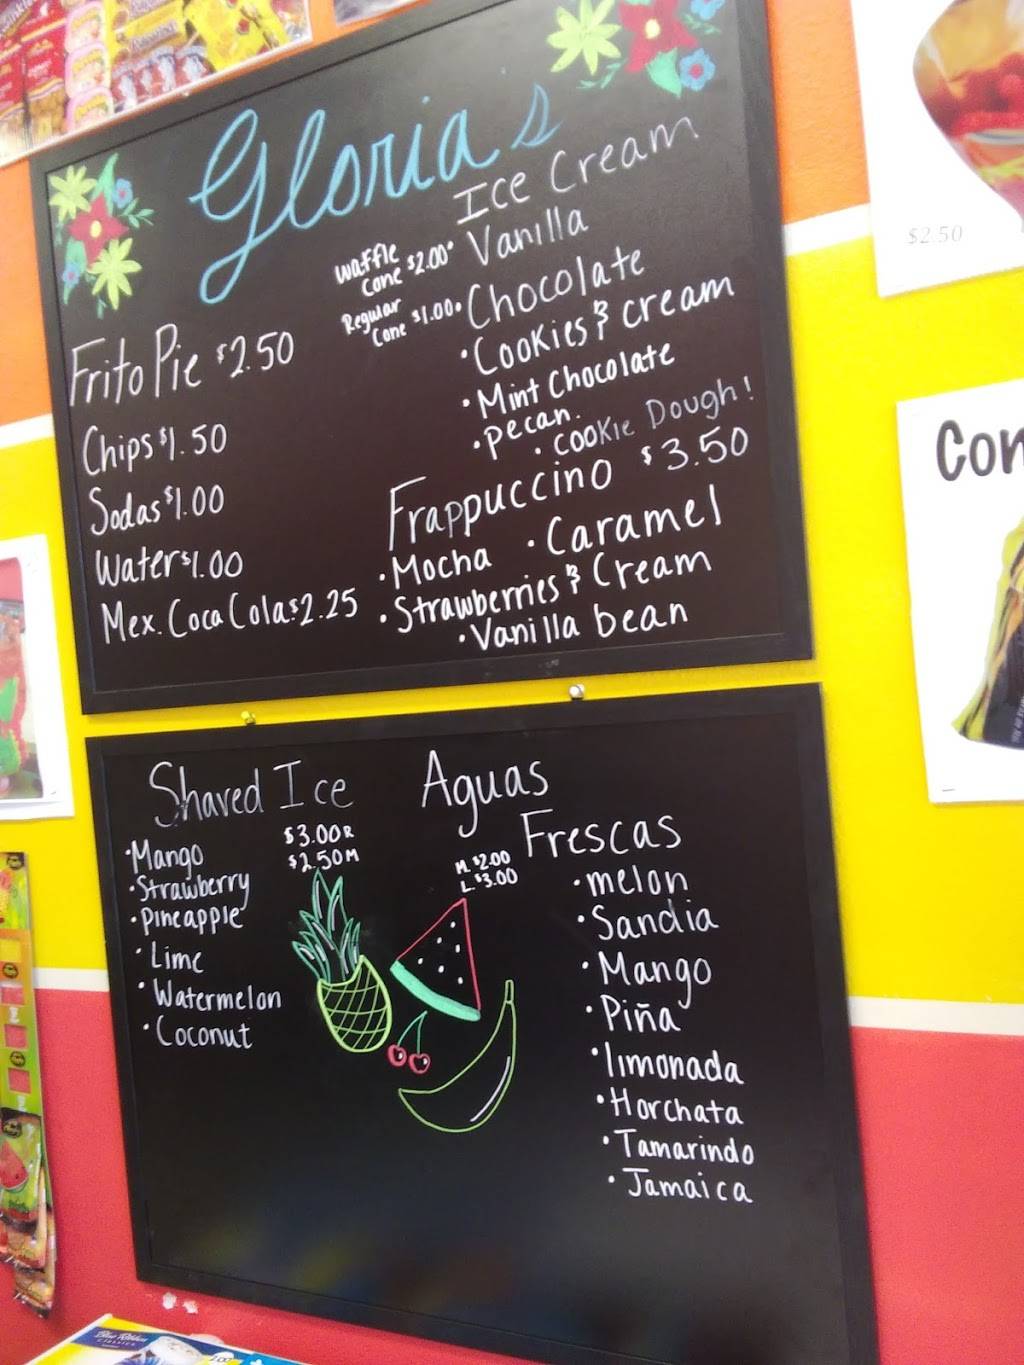 Gloria's
Ice Cream
Waffle
Cone $2.00
Regular
Cone $1.00
• Vanilla
• Chocolate
• Cookies & Cream
• Mint Chocolate
• Pecan.
• Cookie Dough!
Frito Pie $2.50
Chips $1.50
Sodas $1.00
Water $1.00
Mex. Coca Cola $2.25
Frappuccino $3.50
• Mocha
• Caramel
• Strawberries & Cream
• Vanilla bean
Shaved Ice
$3.00 R
$2.50 M
• Mango
• Strawberry
• Pineapple
• Lime
• Watermelon
• Coconut
Aguas
Frescas
M. $2.00
L. $3.00
• melon
• Sandia
• Mango
• Piña
• limonada
• Horchata
• Tamarindo
• Jamaica
$2.50
Con
Blue Ribbon
CLASSICS